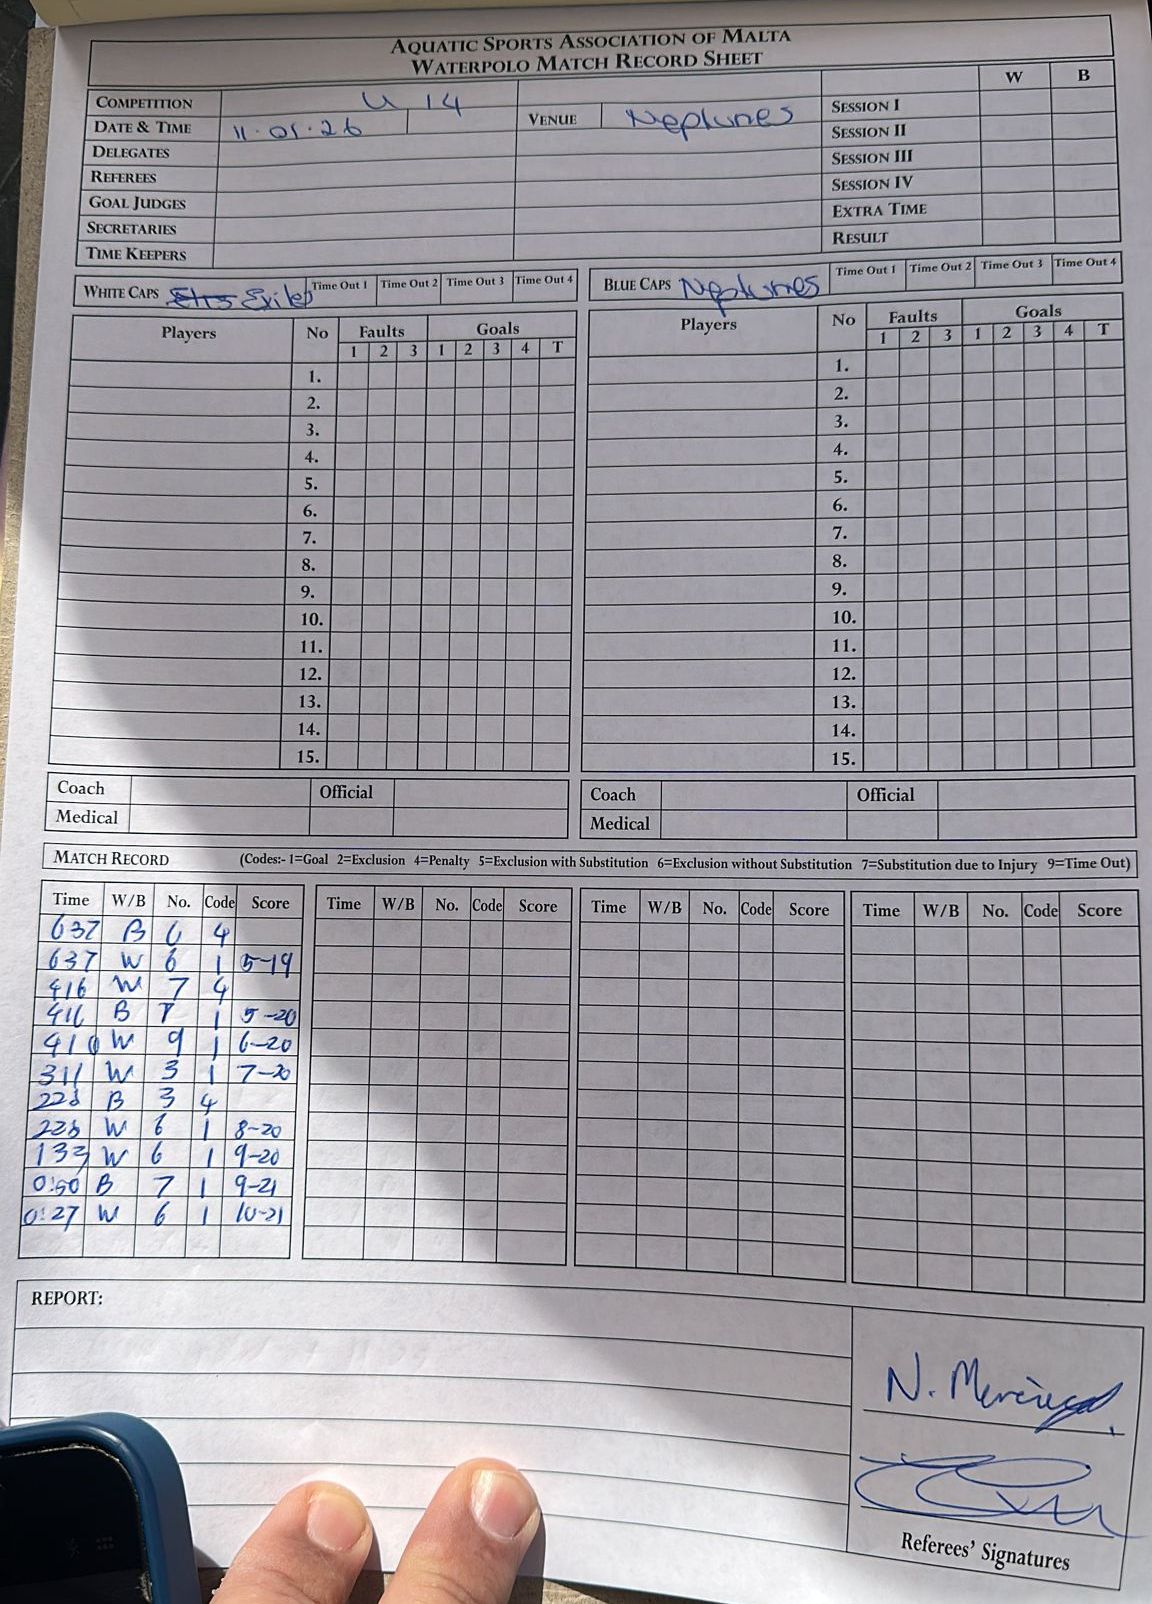 AQUATIC SPORTS ASSOCIATION OF MALTA
WATERPOLO MATCH RECORD SHEET
W B
COMPETITION U 14
DATE & TIME 11.01.26 VENUE Neptunes
DELEGATES
REFEREES
GOAL JUDGES
SECRETARIES
TIME KEEPERS
SESSION I
SESSION II
SESSION III
SESSION IV
EXTRA TIME
RESULT
WHITE CAPS Exiles Time Out 1 Time Out 2 Time Out 3 Time Out 4
BLUE CAPS Neptunes Time Out 1 Time Out 2 Time Out 3 Time Out 4
Players No Faults Goals
1 2 3 1 2 3 4 T
1.
2.
3.
4.
5.
6.
7.
8.
9.
10.
11.
12.
13.
14.
15.
Players No Faults Goals
1 2 3 1 2 3 4 T
1.
2.
3.
4.
5.
6.
7.
8.
9.
10.
11.
12.
13.
14.
15.
Coach Official
Medical
Coach Official
Medical
MATCH RECORD (Codes:- 1=Goal 2=Exclusion 4=Penalty 5=Exclusion with Substitution 6=Exclusion without Substitution 7=Substitution due to Injury 9=Time Out)
Time W/B No. Code Score Time W/B No. Code Score Time W/B No. Code Score Time W/B No. Code Score
637 B 6 4
637 W 6 1 5-19
416 W 7 4
416 B 1 5-20
410 W 9 1 6-20
311 W 3 1 7-20
228 B 3 4
228 W 6 1 8-20
133 W 6 1 9-20
0:50 B 7 1 9-21
0:27 W 6 1 10-21
REPORT:
N. Mercieca
Referees' Signatures